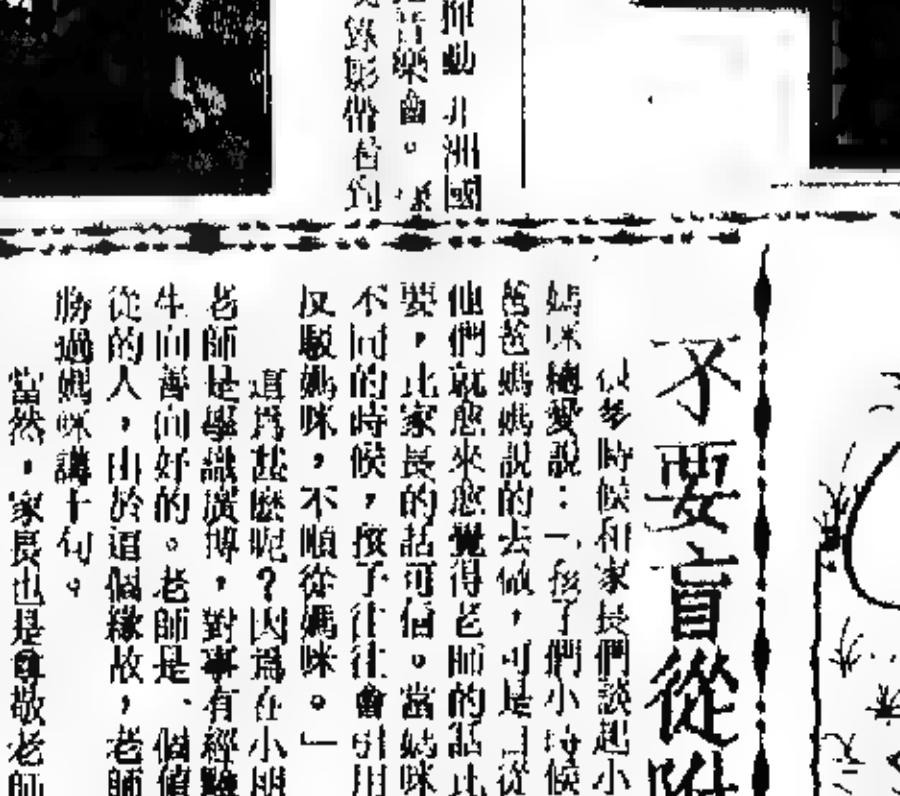 揮動 非洲國
音樂會。
錄影帶看到
不要盲從附
很多時候和家長們談起小
媽咪總愛說：「孩子們小時候
爸爸媽媽說的去做，可是自從
他們就愈來愈覺得老師的話比
要，比家長的話可信。當媽咪
不同的時候，孩子往往會引用
反駁媽咪，不順從媽咪。」
這爲甚麼呢？因爲在小朋
老師是學識廣博，對事有經驗
生向善向好的。老師是一個值
從的人，由於這個緣故，老師
勝過媽咪講十句。
當然，家長也是尊敬老師